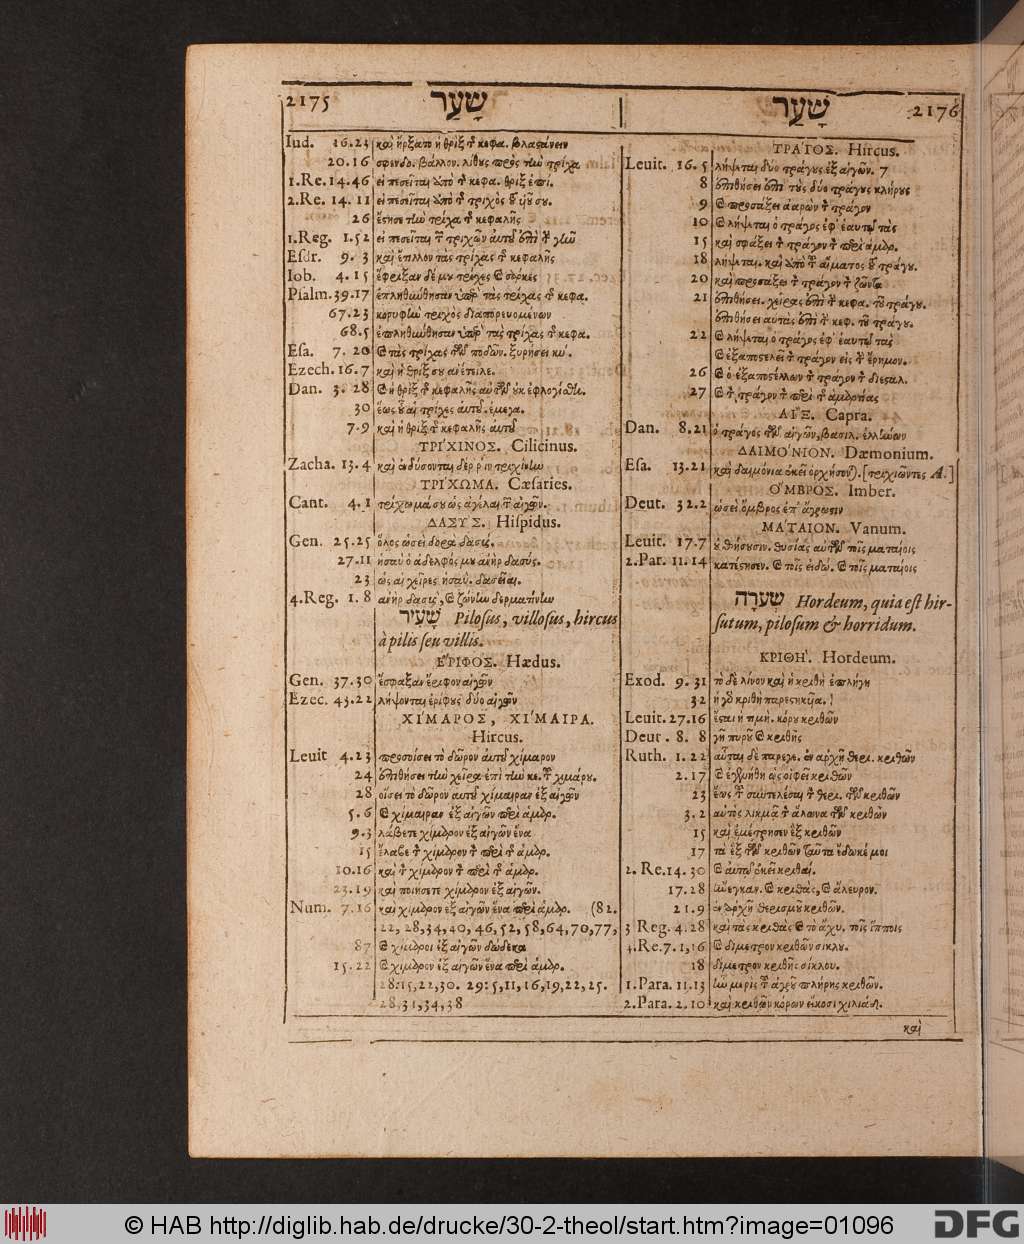 2175 שָׂעַר
Iud. 16.23 καὶ ἤρξατο ἡ θρὶξ τ κεφα. βλαστάνειν
20.16 σφενδο. βάλλον. λίθους πρὸς τὴν τρίχα
1.Re. 14.46 εἰ πεσεῖται ἀπὸ τ κεφα. θρὶξ ἐπί.
2.Re. 14.11 εἰ πεσεῖται ἀπὸ τ τριχὸς
26 ἔστησε τὴν τρίχα τ κεφαλῆς
1.Reg. 1.52 εἰ πεσεῖται τριχῶν αὐτοῦ ἐπὶ τ γῆν
Eſdr. 9.3 καὶ ἔτιλλον τὰς τρίχας τ κεφαλῆς
Iob. 4.15 ἔφριξαν δέ μου τρίχες καὶ σάρκες
Pſalm. 39.17 ἐπληθύνθησαν ὑπὲρ τὰς τρίχας τ κεφα.
67.23 κορυφὴν τριχὸς διαπορευομένων
68.5 ἐπληθύνθησαν ὑπὲρ τὰς τρίχας τ κεφα.
Eſa. 7.20 καὶ τὰς τρίχας τῶν ποδῶν. ξυρήσει κύ.
Ezech. 16.7 καὶ ἡ θρίξ σου ἀνέτειλε.
Dan. 3.28 καὶ ἡ θρὶξ τ κεφαλῆς αὐτῶν οὐκ ἐφλογίσθη.
30 ἕως οὗ αἱ τρίχες αὐτοῦ. ἐμεγα.
7.9 καὶ ἡ θρὶξ τ κεφαλῆς αὐτοῦ
ΤΡΙΧΙΝΟΣ. Cilicinus.
Zacha. 13.4 καὶ ἐνδύσονται δέρριν τριχίνην
ΤΡΙΧΩΜΑ. Cæſaries.
Cant. 4.1 τρίχωμά σου ὡς ἀγέλαι τ αἰγῶν.
ΔΑΣΥΣ. Hiſpidus.
Gen. 25.25 ὅλος ὡσεὶ δορὰ δασύς.
27.11 ἠσαῦ ὁ ἀδελφός μου ἀνὴρ δασύς.
23 ὡς αἱ χεῖρες ἠσαῦ. δασεῖαι.
4.Reg. 1.8 ἀνὴρ δασύς, καὶ ζώνην δερματίνην
שָׂעִיר Piloſus, villoſus, hircus
à pilis ſeu villis.
ΕΡΙΦΟΣ. Hædus.
Gen. 37.30 ἔσφαξαν ἔριφον αἰγῶν
Ezec. 43.22 λήψονται ἐρίφους δύο αἰγῶν
ΧΙΜΑΡΟΣ, ΧΙΜΑΙΡΑ.
Hircus.
Leuit 4.23 προσοίσει τὸ δῶρον αὐτοῦ χίμαρον
24 ἐπιθήσει τὴν χεῖρα ἐπὶ τὴν κε. τ χιμάρου.
28 οἴσει τὸ δῶρον αὐτοῦ χίμαιραν ἐξ αἰγῶν
5.6 καὶ χίμαιραν ἐξ αἰγῶν περὶ ἁμαρ.
9.3 λάβετε χίμαρον ἐξ αἰγῶν ἕνα
15 ἔλαβε τ χίμαρον τ περὶ τ ἁμαρ.
10.16 καὶ τ χίμαρον τ περὶ τ ἁμαρ.
23.19 καὶ ποιήσετε χίμαρον ἐξ αἰγῶν.
Num. 7.16 καὶ χίμαρον ἐξ αἰγῶν ἕνα περὶ ἁμαρ. (82.
22, 28, 34, 40, 46, 52, 58, 64, 70, 77,
87 καὶ χίμαροι ἐξ αἰγῶν δώδεκα
15.22 καὶ χίμαρον ἐξ αἰγῶν ἕνα περὶ ἁμαρ.
28:15, 22, 30. 29:5, 11, 16, 19, 22, 25.
28, 31, 34, 38
שָׂעַר 2176
ΤΡΑΓΟΣ. Hircus.
Leuit. 16.5 λήψεται δύο τράγους ἐξ αἰγῶν. 7
8 ἐπιθήσει ἐπὶ τοὺς δύο τράγους κλήρους
9 καὶ προσάξει ἀαρὼν τ τράγον
10 καὶ λήψεται ὁ τράγος ἐφ᾽ ἑαυτῷ τὰς
15 καὶ σφάξει τ τράγον τ περὶ ἁμαρ.
18 λήψεται. καὶ ἀπὸ τ αἵματος τ τράγου.
20 καὶ προσάξει τ τράγον τ ζῶντα
21 ἐπιθήσει. χεῖρας ἐπὶ τ κεφα. τοῦ τράγου.
ἐπιθήσει αὐτὰς ἐπὶ τ κεφ. τοῦ τράγου.
22 καὶ λήψεται ὁ τράγος ἐφ᾽ ἑαυτῷ τὰς
καὶ ἐξαποστελεῖ τ τράγον εἰς τ ἔρημον.
26 καὶ ὁ ἐξαποστέλλων τ τράγον τ διεσταλ.
27 καὶ τ τράγον τ περὶ τ ἁμαρτίας
ΑΙΞ. Capra.
Dan. 8.21 ὁ τράγος τῶν αἰγῶν, βασιλ. ἑλλήνων
ΔΑΙΜΟΝΙΟΝ. Dæmonium.
Eſa. 13.21 καὶ δαιμόνια ἐκεῖ ὀρχήσον). [τριχιῶντες A.]
ΟΜΒΡΟΣ. Imber.
Deut. 32.2 ὡσεὶ ὄμβρος ἐπ᾽ ἄγρωστιν
ΜΑΤΑΙΟΝ. Vanum.
Leuit. 17.7 οὐ θήσουσιν. θυσίας αὐτῶν τοῖς ματαίοις
2.Par. 11.14 κατέστησεν. καὶ τοῖς εἰδώ. καὶ τοῖς ματαίοις
שְׂעֹרָה Hordeum, quia eſt hir-
ſutum, piloſum & horridum.
ΚΡΙΘΗ. Hordeum.
Exod. 9.31 τὸ δὲ λίνον καὶ ἡ κριθὴ ἐπλήγη
32 ἡ γὸ κριθὴ παρεστηκῦα.
Leuit. 27.16 ἔσται ἡ τιμή. κόρου κριθῶν
Deut. 8.8 γῆ πυροῦ καὶ κριθῆς
Ruth. 1.22 αὗται δὲ παρεγε. ἐν ἀρχῇ θερι. κριθῶν
2.17 καὶ ἐγενήθη ὡς οἰφεὶ κριθῶν
23 ἕως τ συντελέσαι τ θερι. τῶν κριθῶν
3.2 αὐτὸς λικμᾷ τ ἅλωνα τῶν κριθῶν
15 καὶ ἐμέτρησεν ἓξ κριθῶν
17 τὰ ἓξ τῶν κριθῶν ταῦτα ἔδωκέ μοι
2. Re. 14.30 καὶ αὐτῷ ἐκεῖ κριθαί.
17.28 ἤνεγκαν. καὶ κριθὰς, καὶ ἄλευρον.
21.9 ἐν ἀρχῇ θερισμοῦ κριθῶν.
3 Reg. 4.28 καὶ τὰς κριθὰς καὶ τὸ ἄχυ. τοῖς ἵπποις
4.Re. 7.1,16 καὶ δίμετρον κριθῶν σίκλου.
18 δίμετρον κριθῆς σίκλου.
1.Para. 11.13 ἦν μερὶς τ ἀγροῦ πλήρης κριθῶν.
2.Para. 2.10 καὶ κριθῶν κόρων εἴκοσι χιλιάδ.
καὶ
© HAB http://diglib.hab.de/drucke/30-2-theol/start.htm?image=01096
DFG